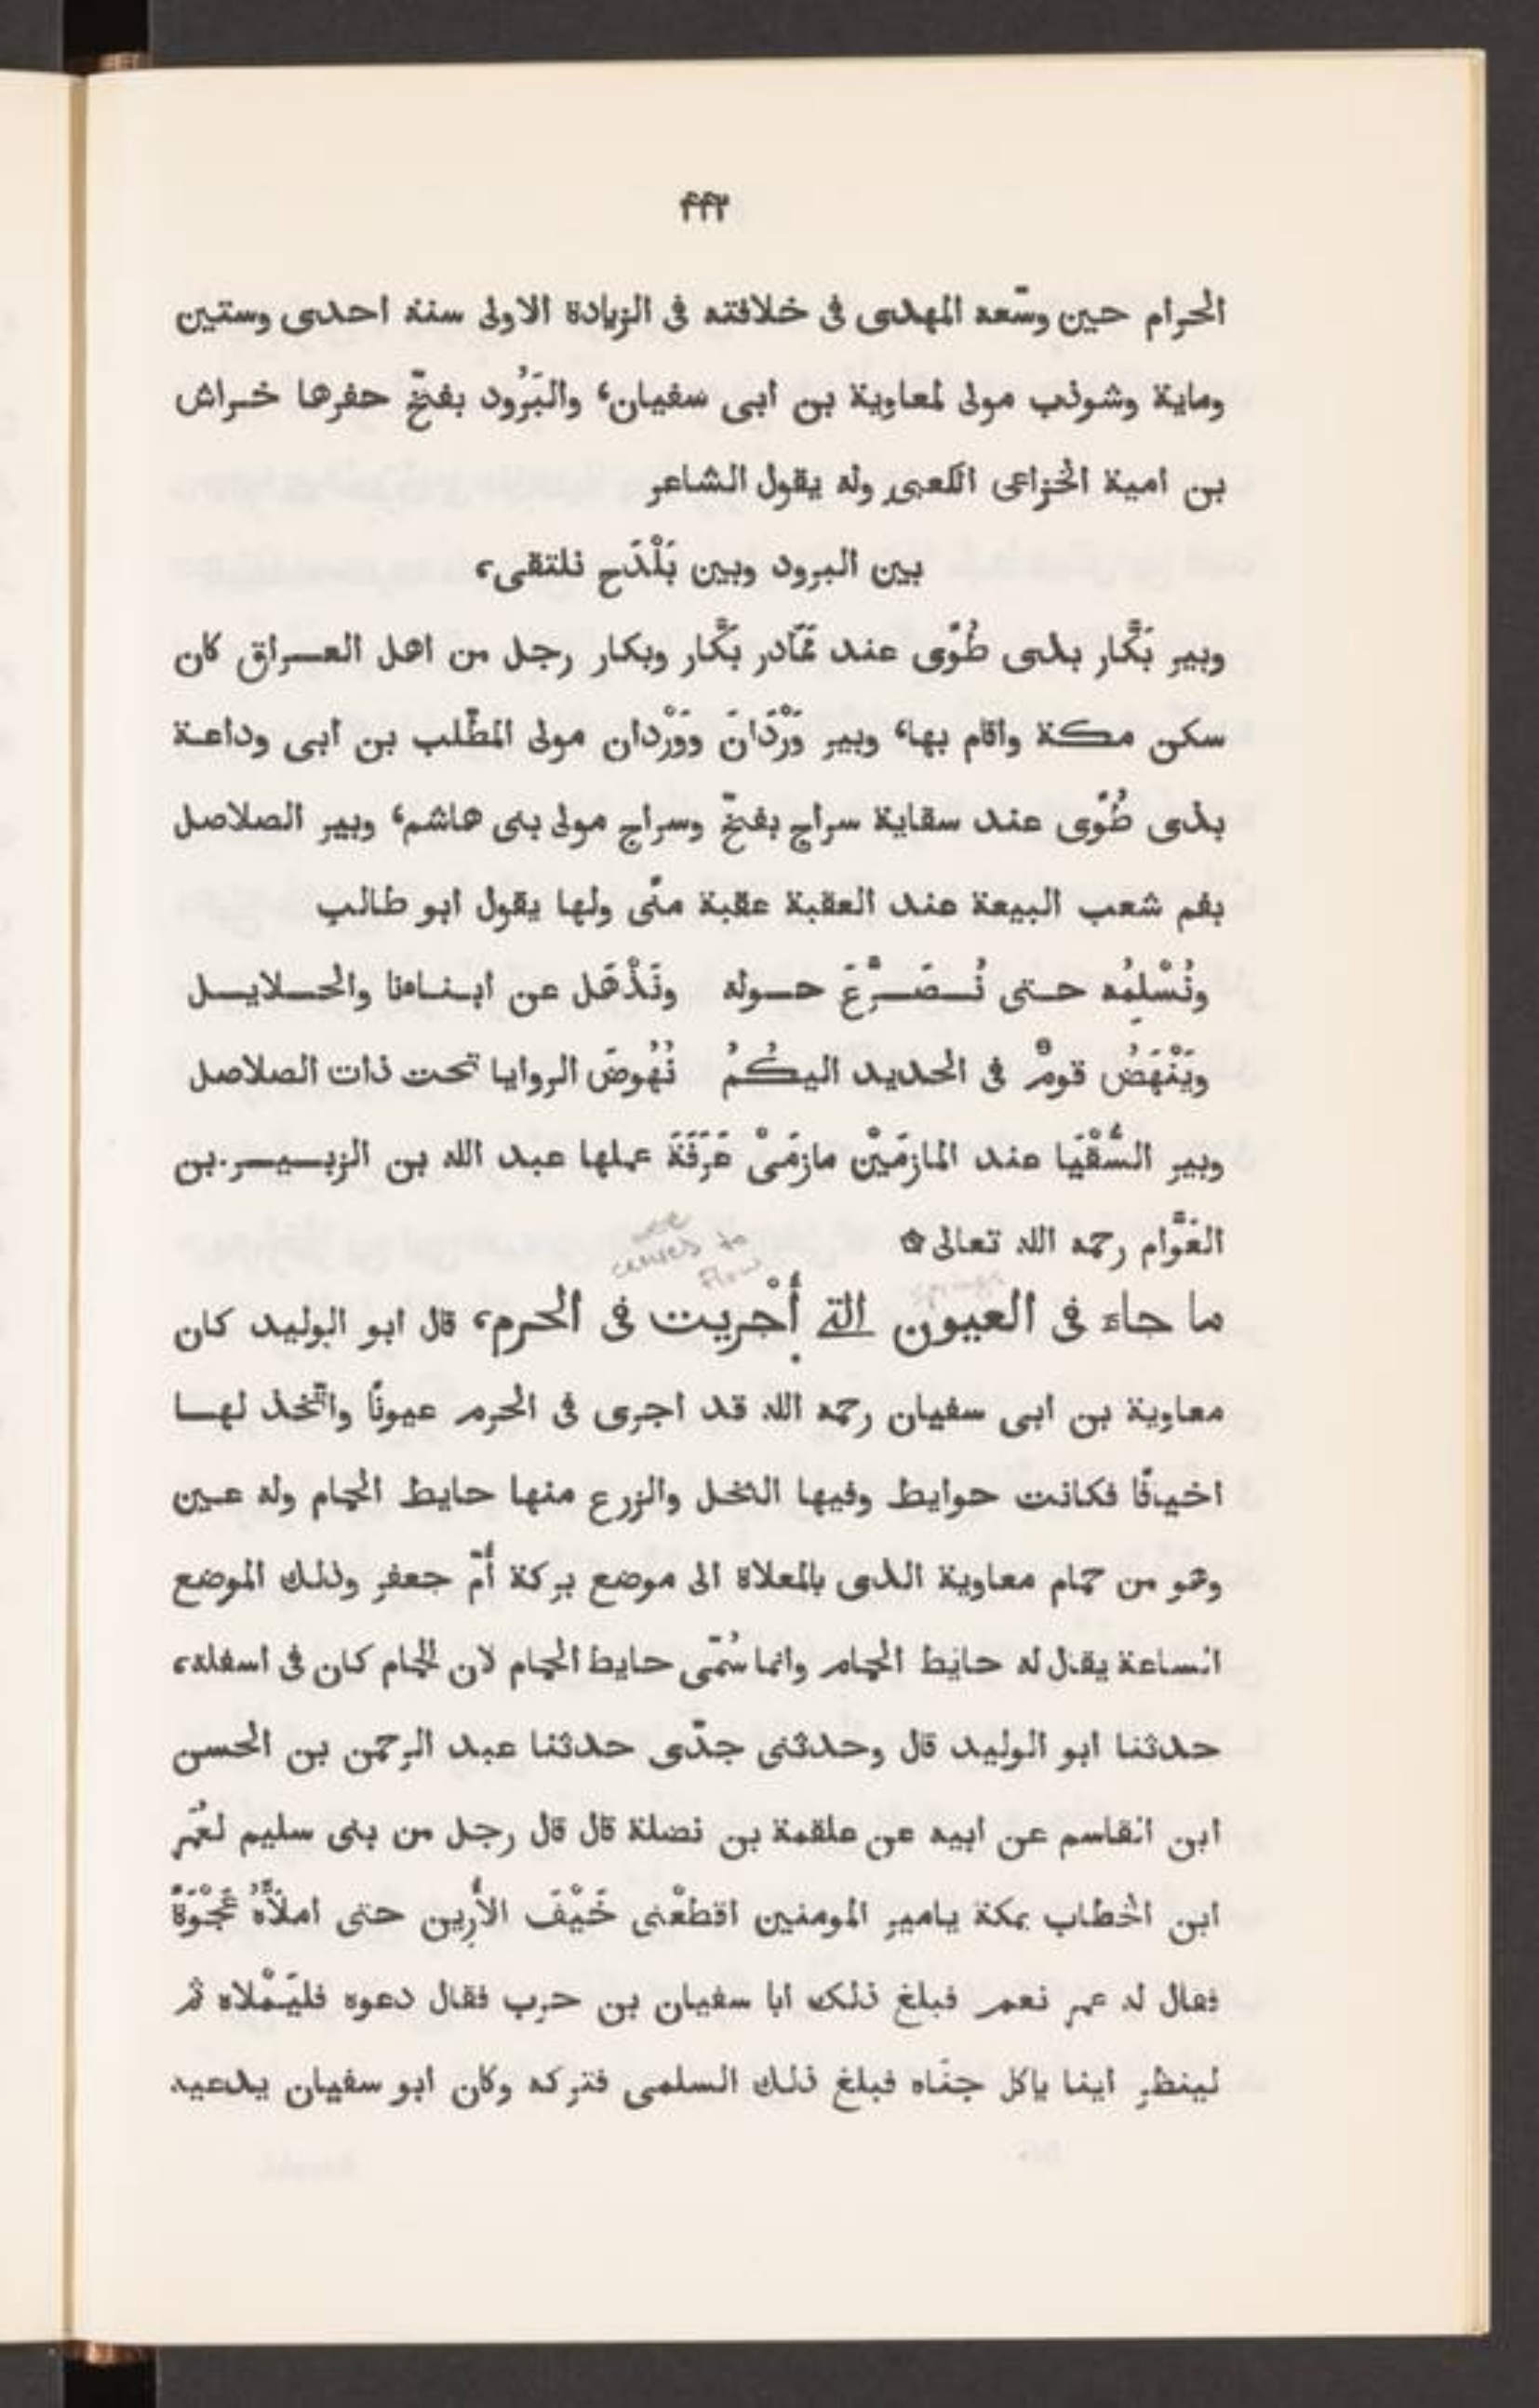 ۴۴۲
الحرام حين وسّعه المهدى فى خلافته فى الزيادة الاولى سنة احدى وستين
وماية وشوذب مولى لمعاوية بن ابى سفيان، والبَرُود بفخّ حفرها خراش
بن امية الخزاعى الكعبى وله يقول الشاعر
بين البرود وبين بَلْدَح نلتقى،
وبير بَكَّار بذى طُوًى عند مَمَادر بَكَّار وبكار رجل من اهل العراق كان
سكن مكة واقام بها، وبير وَرْدَانَ وَوَرْدان مولى المطّلب بن ابى وداعة
بذى طُوًى عند سقاية سراج بفخّ وسراج مولى بنى هاشم، وبير الصلاصل
بفم شعب البيعة عند العقبة عقبة منًى ولها يقول ابو طالب
ونُسْلِمُه حتى نُصَرَّعَ حوله ونَذْهَل عن ابناءنا والحلايل
ويَنْهَضُ قومٌ فى الحديد اليكُمُ نُهُوضَ الروايا تحت ذات الصلاصل
وبير السُّقْيَا عند المازمَيْن مازمَىْ عَرَفَةَ عملها عبد الله بن الزبير بن
العَوَّام رحمه الله تعالى ۞
were
caused to
flow
springs
ما جاء فى العيون التى أُجْريت فى الحرم، قال ابو الوليد كان
معاوية بن ابى سفيان رحمه الله قد اجرى فى الحرم عيونًا واتّخذ لها
اخيافًا فكانت حوايط وفيها النخل والزرع منها حايط الحمام وله عين
وهو من حمام معاوية الذى بالمعلاة الى موضع بركة أمّ جعفر وذلك الموضع
الساعة يقال له حايط الحمام وانما سُمّى حايط الحمام لان الحمام كان فى اسفله،
حدثنا ابو الوليد قال وحدثنى جدّى حدثنا عبد الرحمن بن الحسن
ابن القاسم عن ابيه عن علقمة بن نضلة قال قال رجل من بنى سليم لعُمَر
ابن الخطاب بمكة يامير المومنين اقطعْنى خَيْفَ الأَرِين حتى املأَهُ عَجْوَةً
فقال له عمر نعم فبلغ ذلك ابا سفيان بن حرب فقال دعوه فليَمْلاه ثم
لينظر اينا ياكل جنَاه فبلغ ذلك السلمى فتركه وكان ابو سفيان يدعيه